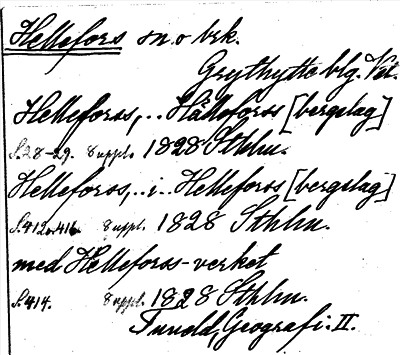 Hellefors sn. o brk.
Grythytte blg. Vstm.
Helleforss,.. Hälleforss [bergslag]
S. 28-29. 8 uppl. 1828 Sthlm.
Helleforss,..i.. Helleforss [bergslag]
S. 412 o. 416. 8 uppl. 1828 Sthlm.
med Helleforss-verket
S. 414. 8 uppl. 1828 Sthlm.
Tuneld, Geografi. II.